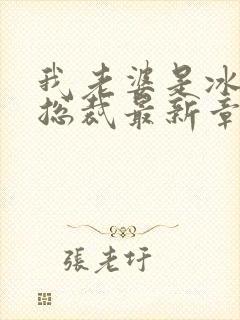 我老婆是冰
总裁最新章
張老圩